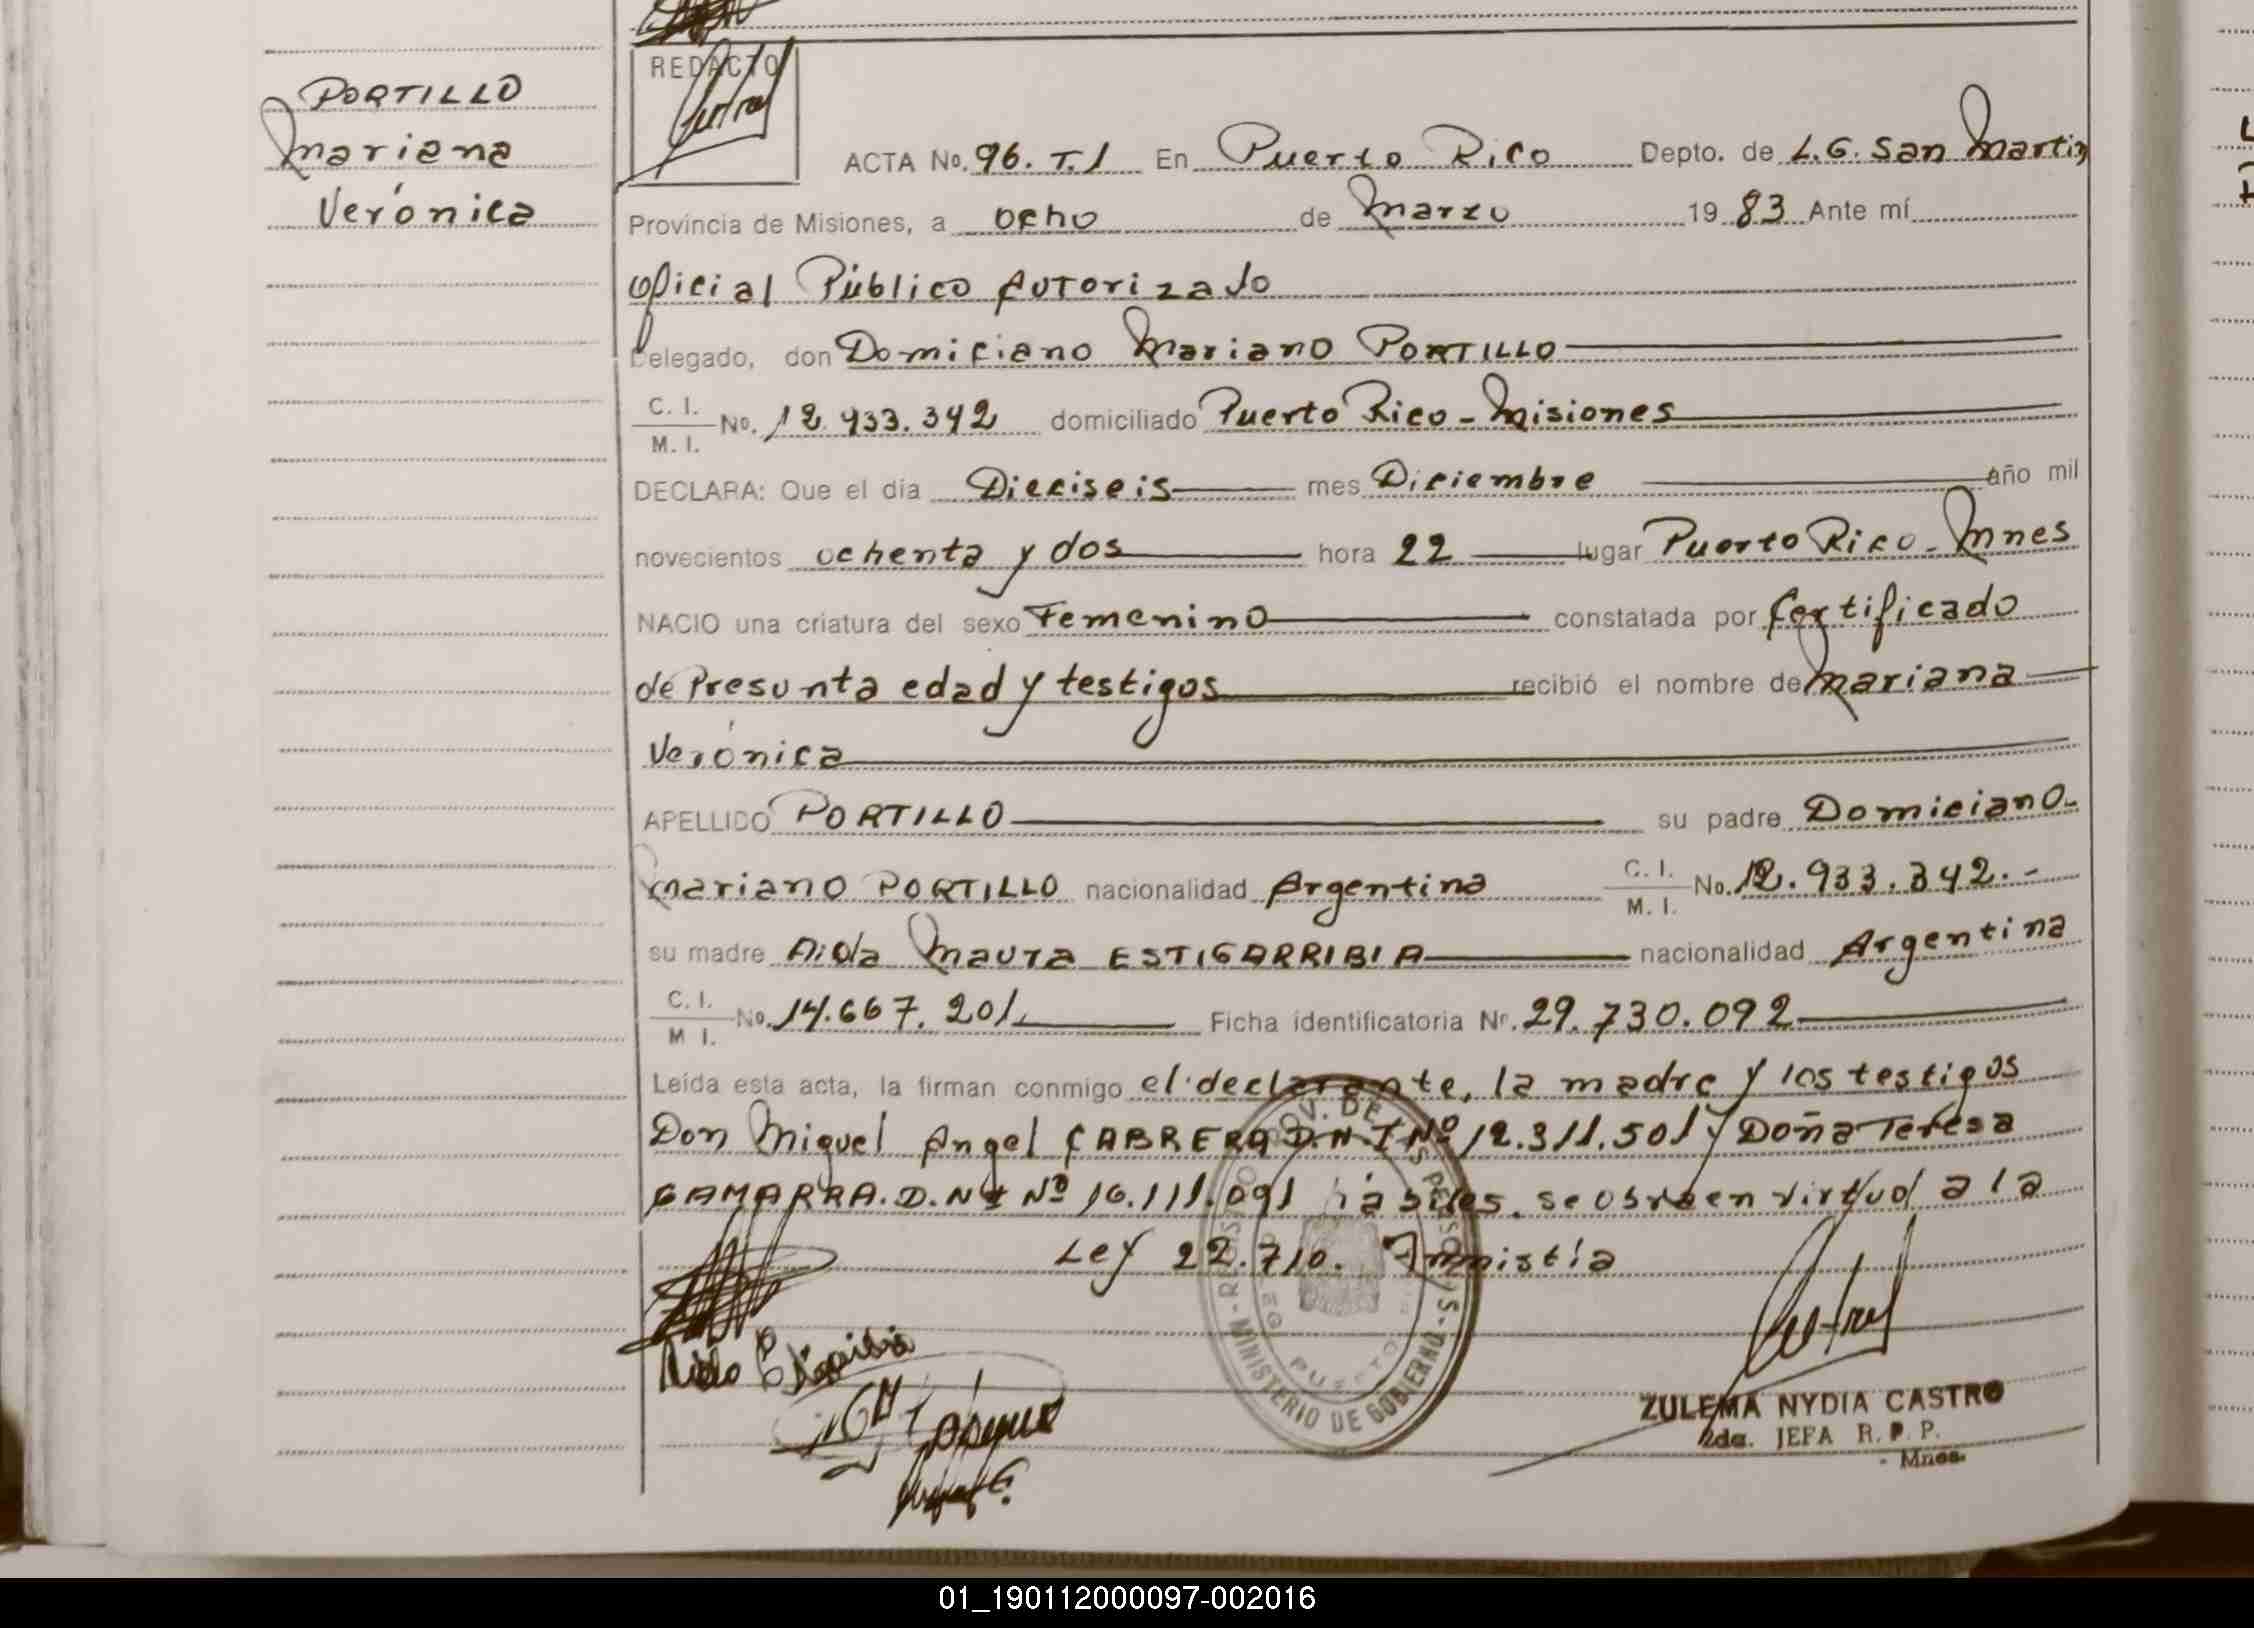 PORTILLO
Mariana
Verónica
REDACTO
ACTA No. 96. T.I En Puerto Rico Depto. de L.G. San Martin
Provincia de Misiones, a ocho de Marzo 19 83 Ante mí
Oficial Público Autorizado
Delegado, don Domiciano Mariano PORTILLO
C. I.
M. I. No. 12.933.342 domiciliado Puerto Rico - Misiones
DECLARA: Que el día Dieciseis mes Diciembre año mil
novecientos ochenta y dos hora 22 lugar Puerto Rico - Mnes
NACIO una criatura del sexo Femenino constatada por Certificado
de Presunta edad y testigos recibió el nombre de Mariana
Verónica
APELLIDO PORTILLO su padre Domiciano
Mariano PORTILLO nacionalidad Argentina C. I. M. I. No. 12.933.342.-
su madre Aida Maura ESTIGARRIBIA nacionalidad Argentina
C. I.
M I. No. 14.667.201 Ficha identificatoria Nº. 29.730.092
Leída esta acta, la firman conmigo el declarante, la madre y los testigos
Don Miguel Angel CABRERA D.N.I Nº 12.311.501 y Doña Teresa
GAMARRA. D.NI Nº 16.111.091 hábiles. se obra en virtud a la
Ley 22.710. Amnistía
REGISTRO PROV. DE LAS PERSONAS - MINISTERIO DE GOBIERNO
PUERTO
ZULEMA NYDIA CASTRO
2da. JEFA R. P. P.
- Mnes-
01_190112000097-002016